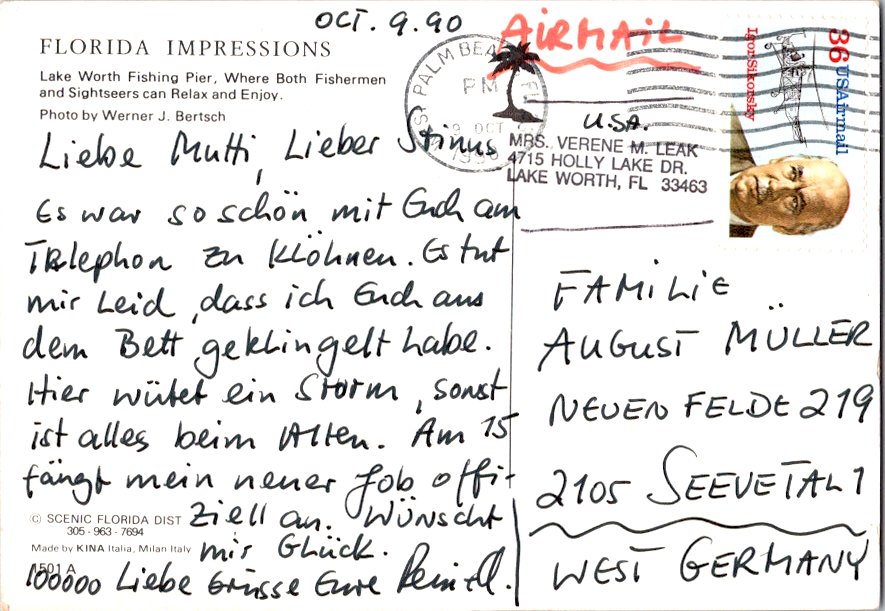 OCT. 9. 90
AIRMAIL
FLORIDA IMPRESSIONS
Lake Worth Fishing Pier, Where Both Fishermen
and Sightseers can Relax and Enjoy.
Photo by Werner J. Bertsch
PALM BEA
PM
OCT
1990
36 USAirmail
Igor Sikorsky
U.S.A.
MRS. VERENE M. LEAK
4715 HOLLY LAKE DR.
LAKE WORTH, FL 33463
Liebe Mutti, Lieber Stinus
Es war so schön mit Euch am
Telephon zu klöhnen. Es tut
mir Leid, dass ich Euch aus
dem Bett geklingelt habe.
Hier wütet ein Storm, sonst
ist alles beim Alten. Am 15
fängt mein neuer Job offi-
ziell an. Wünscht
mir Glück.
100000 Liebe Grüsse Eure
FAMILIE
AUGUST MÜLLER
NEUEN FELDE 219
2105 SEEVETAL 1
WEST GERMANY
© SCENIC FLORIDA DIST
305-963-7694
Made by KINA Italia, Milan Italy
1501 A